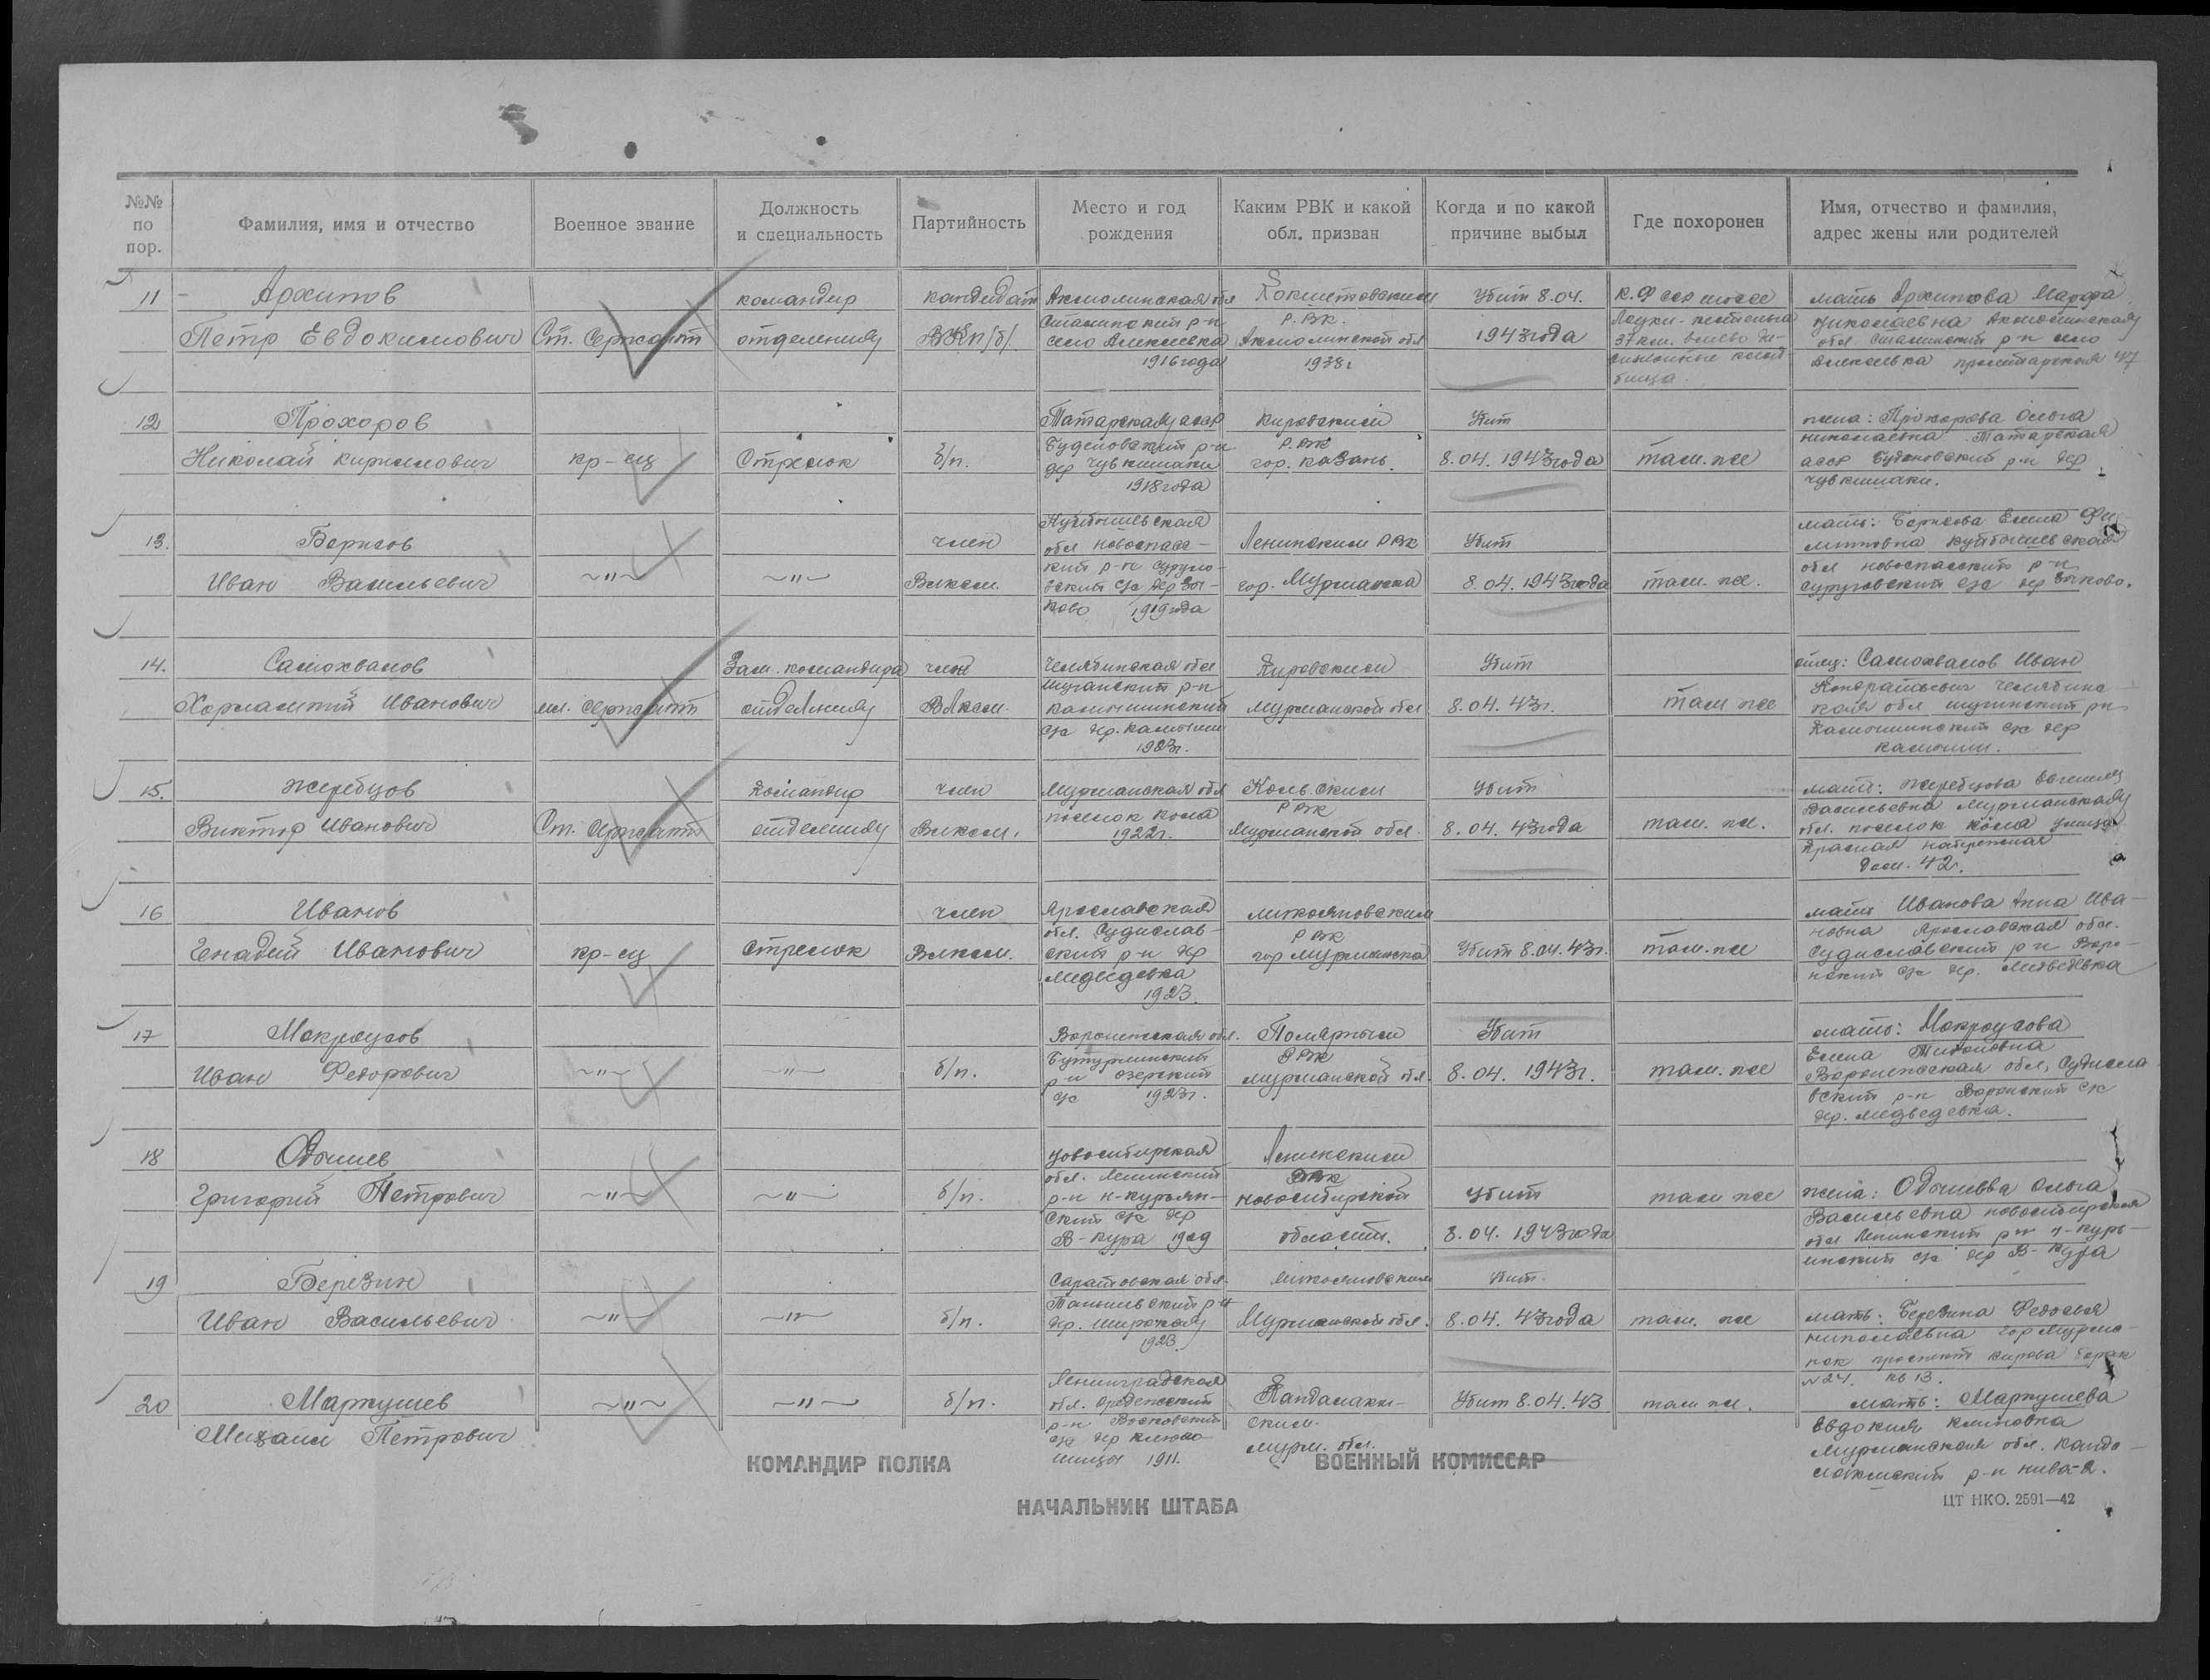 №№ по пор.
Фамилия, имя и отчество
Военное звание
Должность и специальность
Партийность
Место и год рождения
Каким РВК и какой обл. призван
Когда и по какой причине выбыл
Где похоронен
Имя, отчество и фамилия, адрес жены или родителей
11 Архипов командир кандидат Акмолинская обл Кокчетовским Убит 8.04. мать Архипова Марфа
Петр Евдокимович Ст. Сержант отделения ВКп/б/. Сталинский р-н село Алексеевка 1916 года Р.ВК. Акмолинской обл 1938г 1943 года 37 км. влево
Николаевна Акмолинская
обл Сталинский р-н село
Алексеевка пролетарская 47
12 Прохоров Татарская асср Кировским Убит жена: Прохорова Ольга
Николай Кириллович кр-ец Стрелок б/п. р-н дер 1918 года РВК гор. Казань. 8.04. 1943 года там. же
Николаевна Татарская
асср р-н дер
13. Борисов член Куйбышевская Ленинским РВК Убит мать: Борисова Елена
Иван Васильевич —"— —"— Влксм. обл новоспасский р-н с/с дер Зыково 1919 года гор. Мурманска 8.04. 1943 года там. же.
Куйбышевская
обл новоспасский р-н
с/с дер Зыково.
14. Самохвалов Зам. командира член Челябинская обл Кировским Убит отец: Самохвалов Иван
Иванович мл. сержант отделения Влксм. р-н с/с дер. Камышин 1923г. Мурманской обл 8.04. 43г. там же
обл р-н
с/с дер
15. Жеребцов Командир член Мурманская обл Кольским Убит мать: Жеребцова Евгения
Виктор Иванович Ст. Сержант отделения Влксм. поселок Кола 1922г. РВК Мурманской обл. 8.04. 43 года там. же.
Васильевна Мурманская
обл. поселок Кола улица
Красная набережная
дом. 42.
16 Иванов член Ярославская Микояновским мать Иванова Анна Ива-
Генадий Иванович кр-ец Стрелок Влксм. обл. Судислав- ский р-н дер Медведевка 1923. РВК гор Мурманска Убит 8.04. 43г. там. же
новна Ярославская обл.
Судиславский р-н Воро-
нский с/с дер. Медведевка
17 Мокроусов Воронежская обл. Полярным Убит мать: Мокроусова
Иван Федорович —"— —"— б/п. Бутурлинский р-н озерский с/с 1923г. РВК Мурманской обл. 8.04. 1943г. там. же
Елена Тихоновна
Воронежская обл, Судисла
вский р-н Воронский с/с
дер. Медведевка.
18 Одышев Новосибирская Ленинским
Григорий Петрович —"— —"— б/п. обл. Ленинский р-н с/с дер В-Кура 1909 РВК Новосибирской области. Убит 8.04. 1943 года там же жена: Одышевва Ольга
Васильевна новосибирская
обл Ленинский р-н
с/с дер В-Кура
19 Березин Саратовская обл. Микояновским Убит.
Иван Васильевич —"— —"— б/п. р-н дер. 1923. Мурманской обл. 8.04. 43 года там. же мать: Березина Федосья
Николаевна гор Мурма-
нск проспект Кирова барак
№24. кв 13.
20 Маркушев —"— —"— б/п. Ленинградская обл. р-н с/с дер 1911. Кандалакш- ским. Мурм. обл. Убит 8.04.43 там же. мать: Маркушева
Михаил Петрович
Евдокия
Мурманская обл. Канда-
лакшский р-н нива-2.
КОМАНДИР ПОЛКА
ВОЕННЫЙ КОМИССАР
НАЧАЛЬНИК ШТАБА
ЦТ НКО. 2591—42